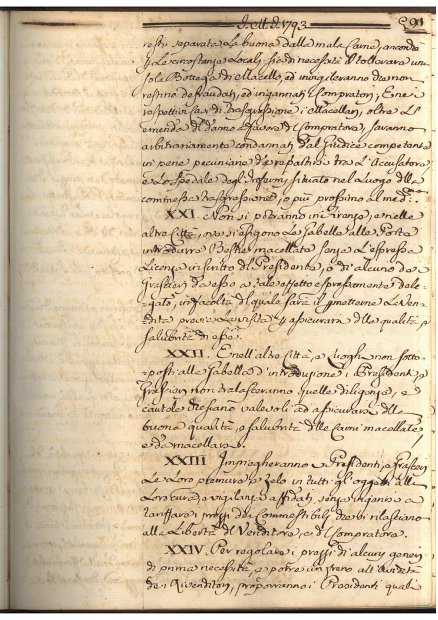 A. M. D. 1793
291
resti separata la buona dalla mala Carne, accorde
le circostanze Locali, sia di necessità il tollerare un
sola Bottega di Macello, ed invigileranno che non
restino defraudati, ed ingannati i Compratori, E ne i
rispettivi Casi di trasgressione i Macellari, oltre l'
emenda del danno a favore del Compratore, saranno
arbitrariamente condannati dal Giudice competente
in pene pecuniarie da repartirsi tra l'Accusatore
e lo Spedale degl'Infermi situato nel Luogo della
commessa trasgressione, o più prossimo al med.mo
XXI. Non si potranno in Firenze, e nelle
altre Città, ove si esigono le Gabelle alle Porte
introdurre Bestie macellate senza l'espressa
Licenza in scritto del Presidente, o di alcuno de
Grascieri da esso a tale effetto espressamente dele-
gato, in facoltà di quale sarà il permetterne la Ven-
dita previa la visita assicurarsi della qualità, e
salubrità di esse.
XXII. E nell'altre Città, e Luoghi non sotto-
posti alle Gabelle d'introduzione i Presidenti, e
Grascieri non tralasceranno quelle diligenze, e
cautele che siano valevoli ad assicurarsi della
buona qualità, e salubrità delle Carni macellate
e da macellarsi.
XXIII Impiegheranno i Presidenti, e Grascieri
le loro premure, e zelo in tutti gl'oggetti alla
loro cura, e vigilanza affidati, senza ingerirsi a
tariffare i prezzi dei Commestibili che si rilasciano
alla Libertà del Venditore, e del Compratore.
XXIV. Per regolare i prezzi di alcuni generi
di prima necessità, e porre un freno all'avidità
dei Rivenditori, proporranno i Presidenti quali